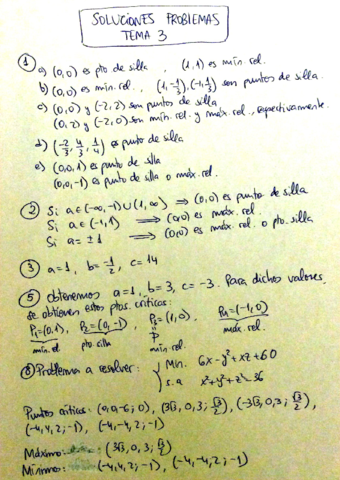 SOLUCIONES PROBLEMAS
TEMA 3
① a) (0,0) es pto de silla , (1,1) es mín rel.
b) (0,0) es mín. rel. , (1,-1/3), (-1,1/3) son puntos de silla.
c) (0,0) y (-2,2) son puntos de silla
(0,2) y (-2,0) son mín. rel. y máx. rel., respectivamente.
d) (-2/3, 4/3, 1/4) es punto de silla
e) (0,0,1) es punto de silla
(0,0,-1) es punto de silla o máx. rel.
② Si a∈(-∞,-1)∪(1,∞) ⟹ (0,0) es punto de silla
Si a∈(-1,1) ⟹ (0,0) es máx. rel.
Si a=±1 ⟹ (0,0) es máx. rel. o pto. silla
③ a=1, b=-1/2, c=14
⑤ obtenemos a=1, b=3, c=-3. Para dichos valores
se obtienen estos ptos. críticos:
P₁=(0,1), P₂=(0,-1), P₃=(1,0), P₄=(-1,0)
mín. rel. pto. silla mín. rel. máx. rel.
Problema a resolver: { Min. 6x-y²+xz+60
s.a x²+y²+z²=36
Puntos críticos: (0,0,-6;0), (3√3,0,3;√3/2), (-3√3,0,3;√3/2),
(-4,4,2;-1), (-4,-4,2;-1)
Máximo: (3√3,0,3;√3/2)
Mínimos: (-4,4,2;-1), (-4,-4,2;-1)